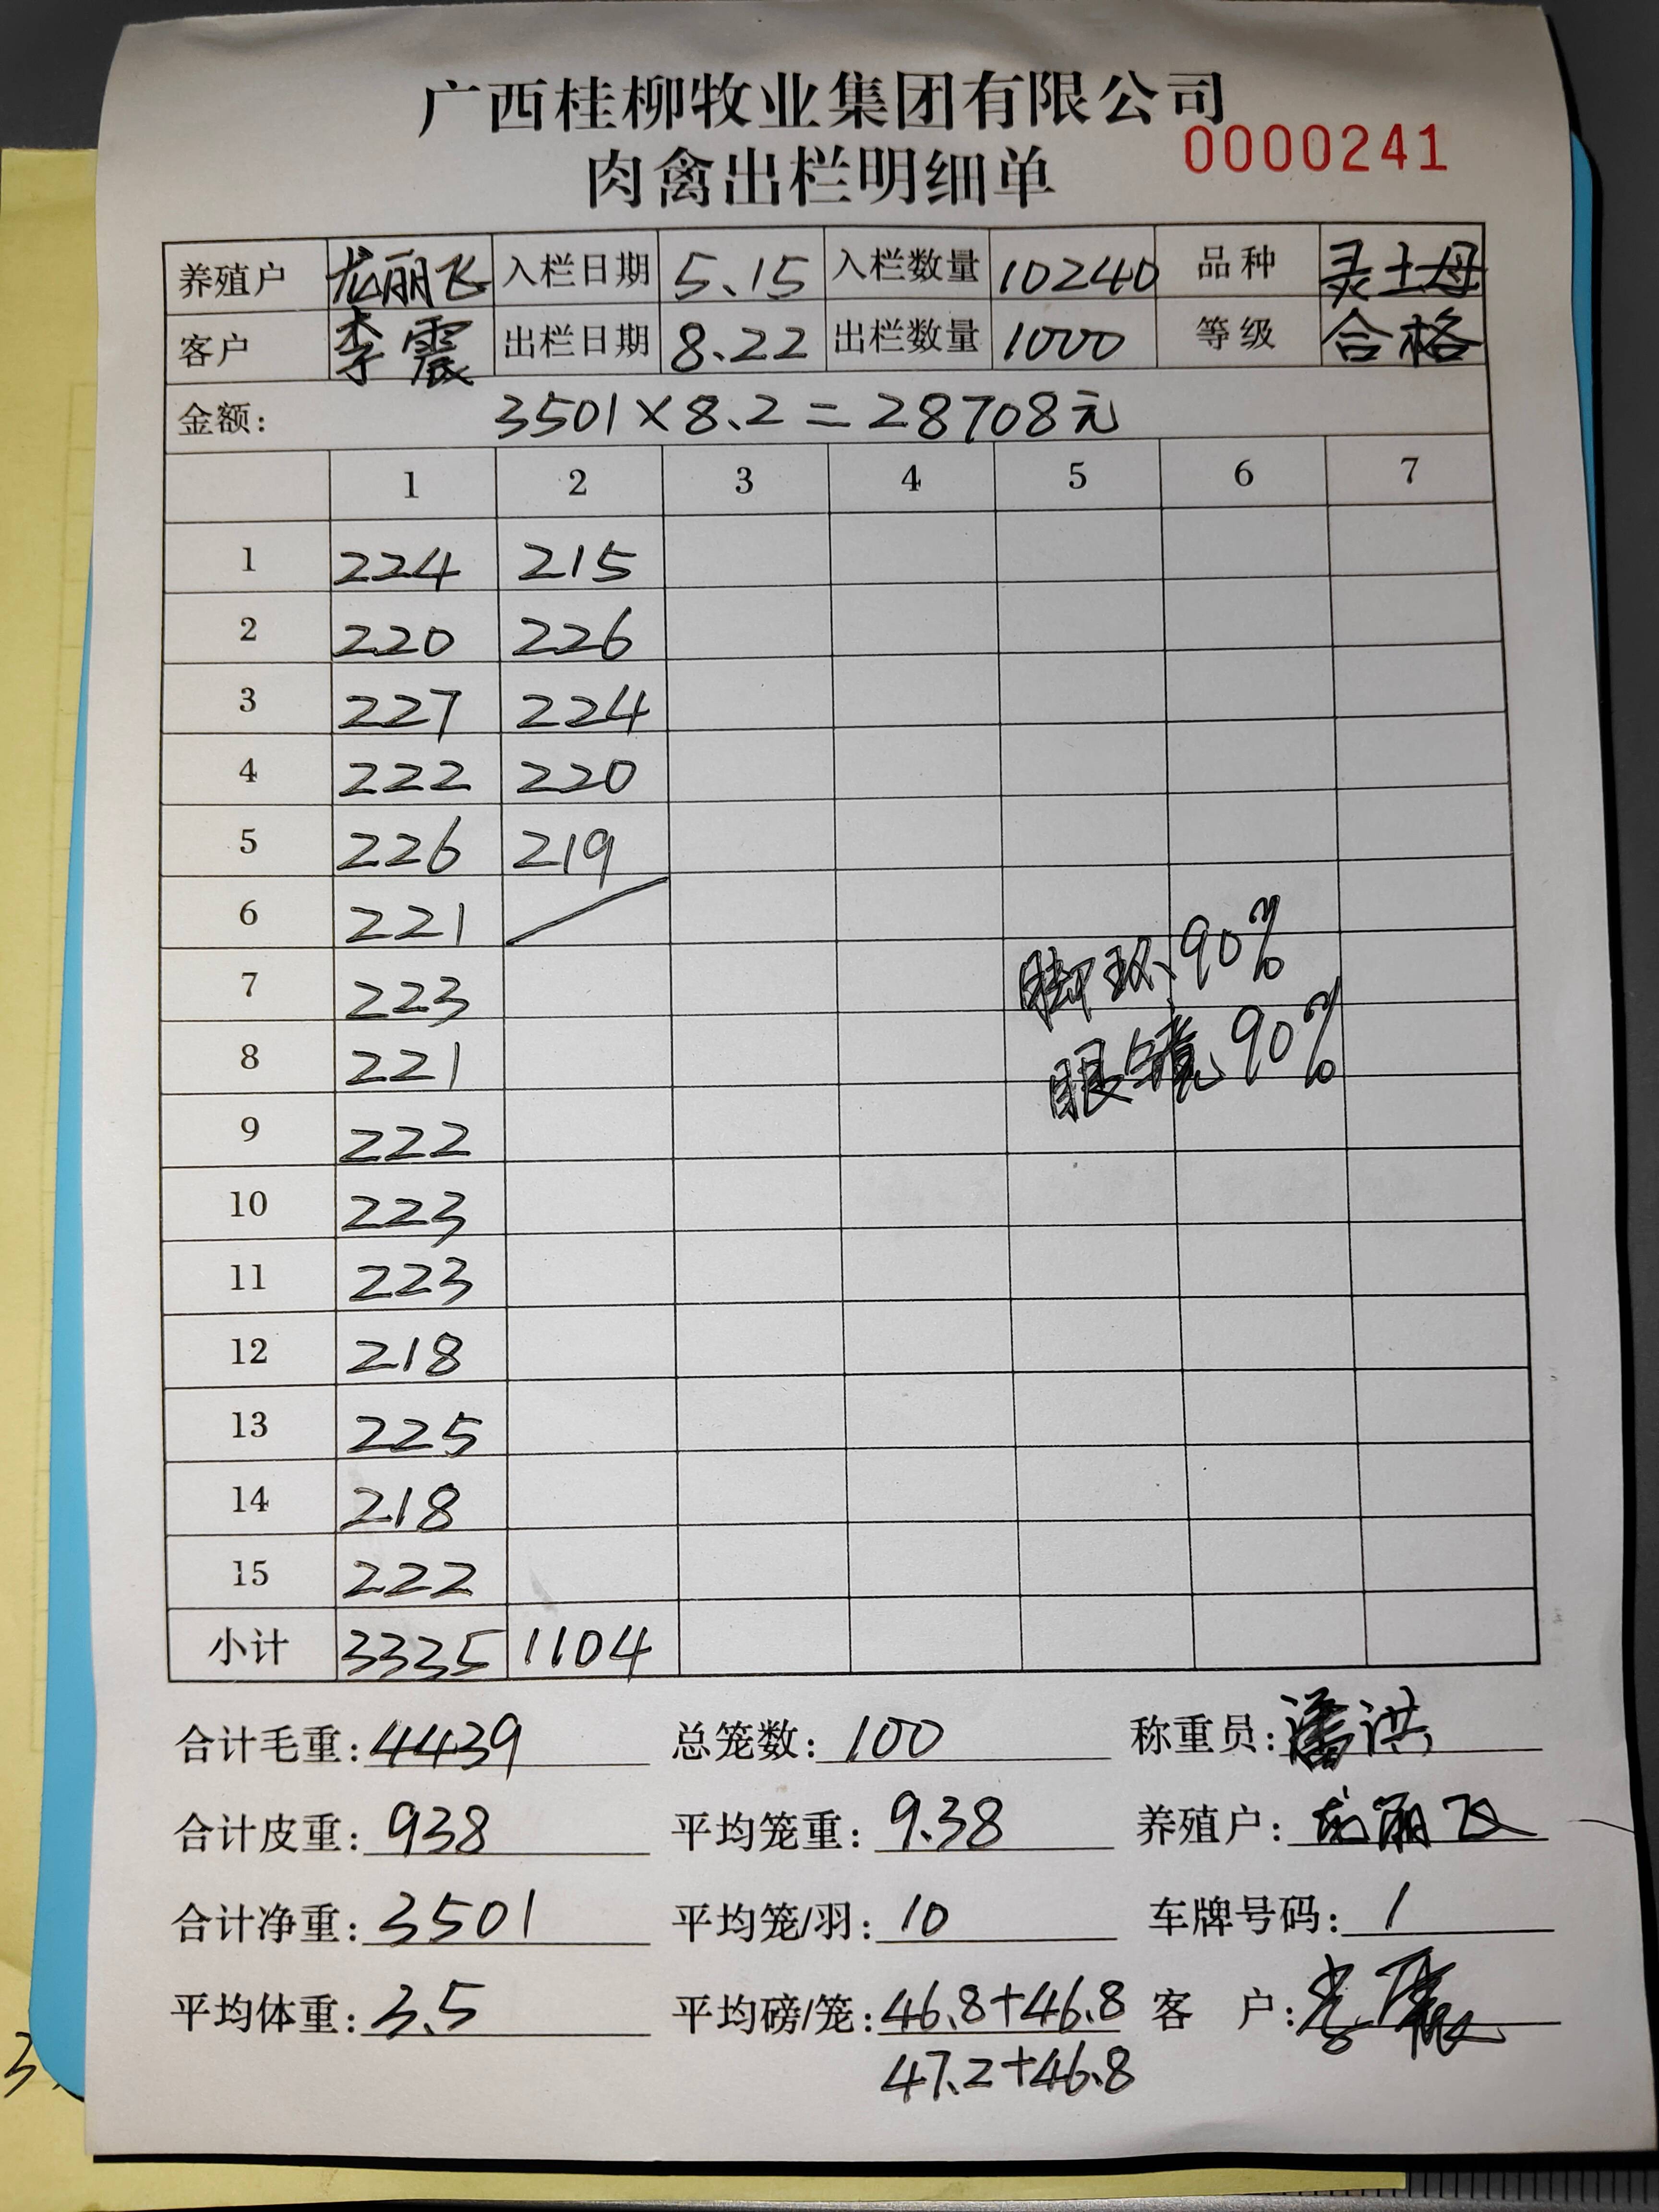 广西桂柳牧业集团有限公司
肉禽出栏明细单 0000241
养殖户 龙丽飞 入栏日期 5.15 入栏数量 10240 品种 灵土母
客户 李震 出栏日期 8.22 出栏数量 1000 等级 合格
金额: 3501×8.2=28708元
1 2 3 4 5 6 7
1 224 215
2 220 226
3 227 224
4 222 220
5 226 219
6 221
7 223 脚环90%
8 221 眼镜90%
9 222
10 223
11 223
12 218
13 225
14 218
15 222
小计 3335 1104
合计毛重: 4439 总笼数: 100 称重员: 潘洪
合计皮重: 938 平均笼重: 9.38 养殖户: 龙丽飞
合计净重: 3501 平均笼/羽: 10 车牌号码: 1
平均体重: 3.5 平均磅/笼: 46.8+46.8 客户: 李震
47.2+46.8